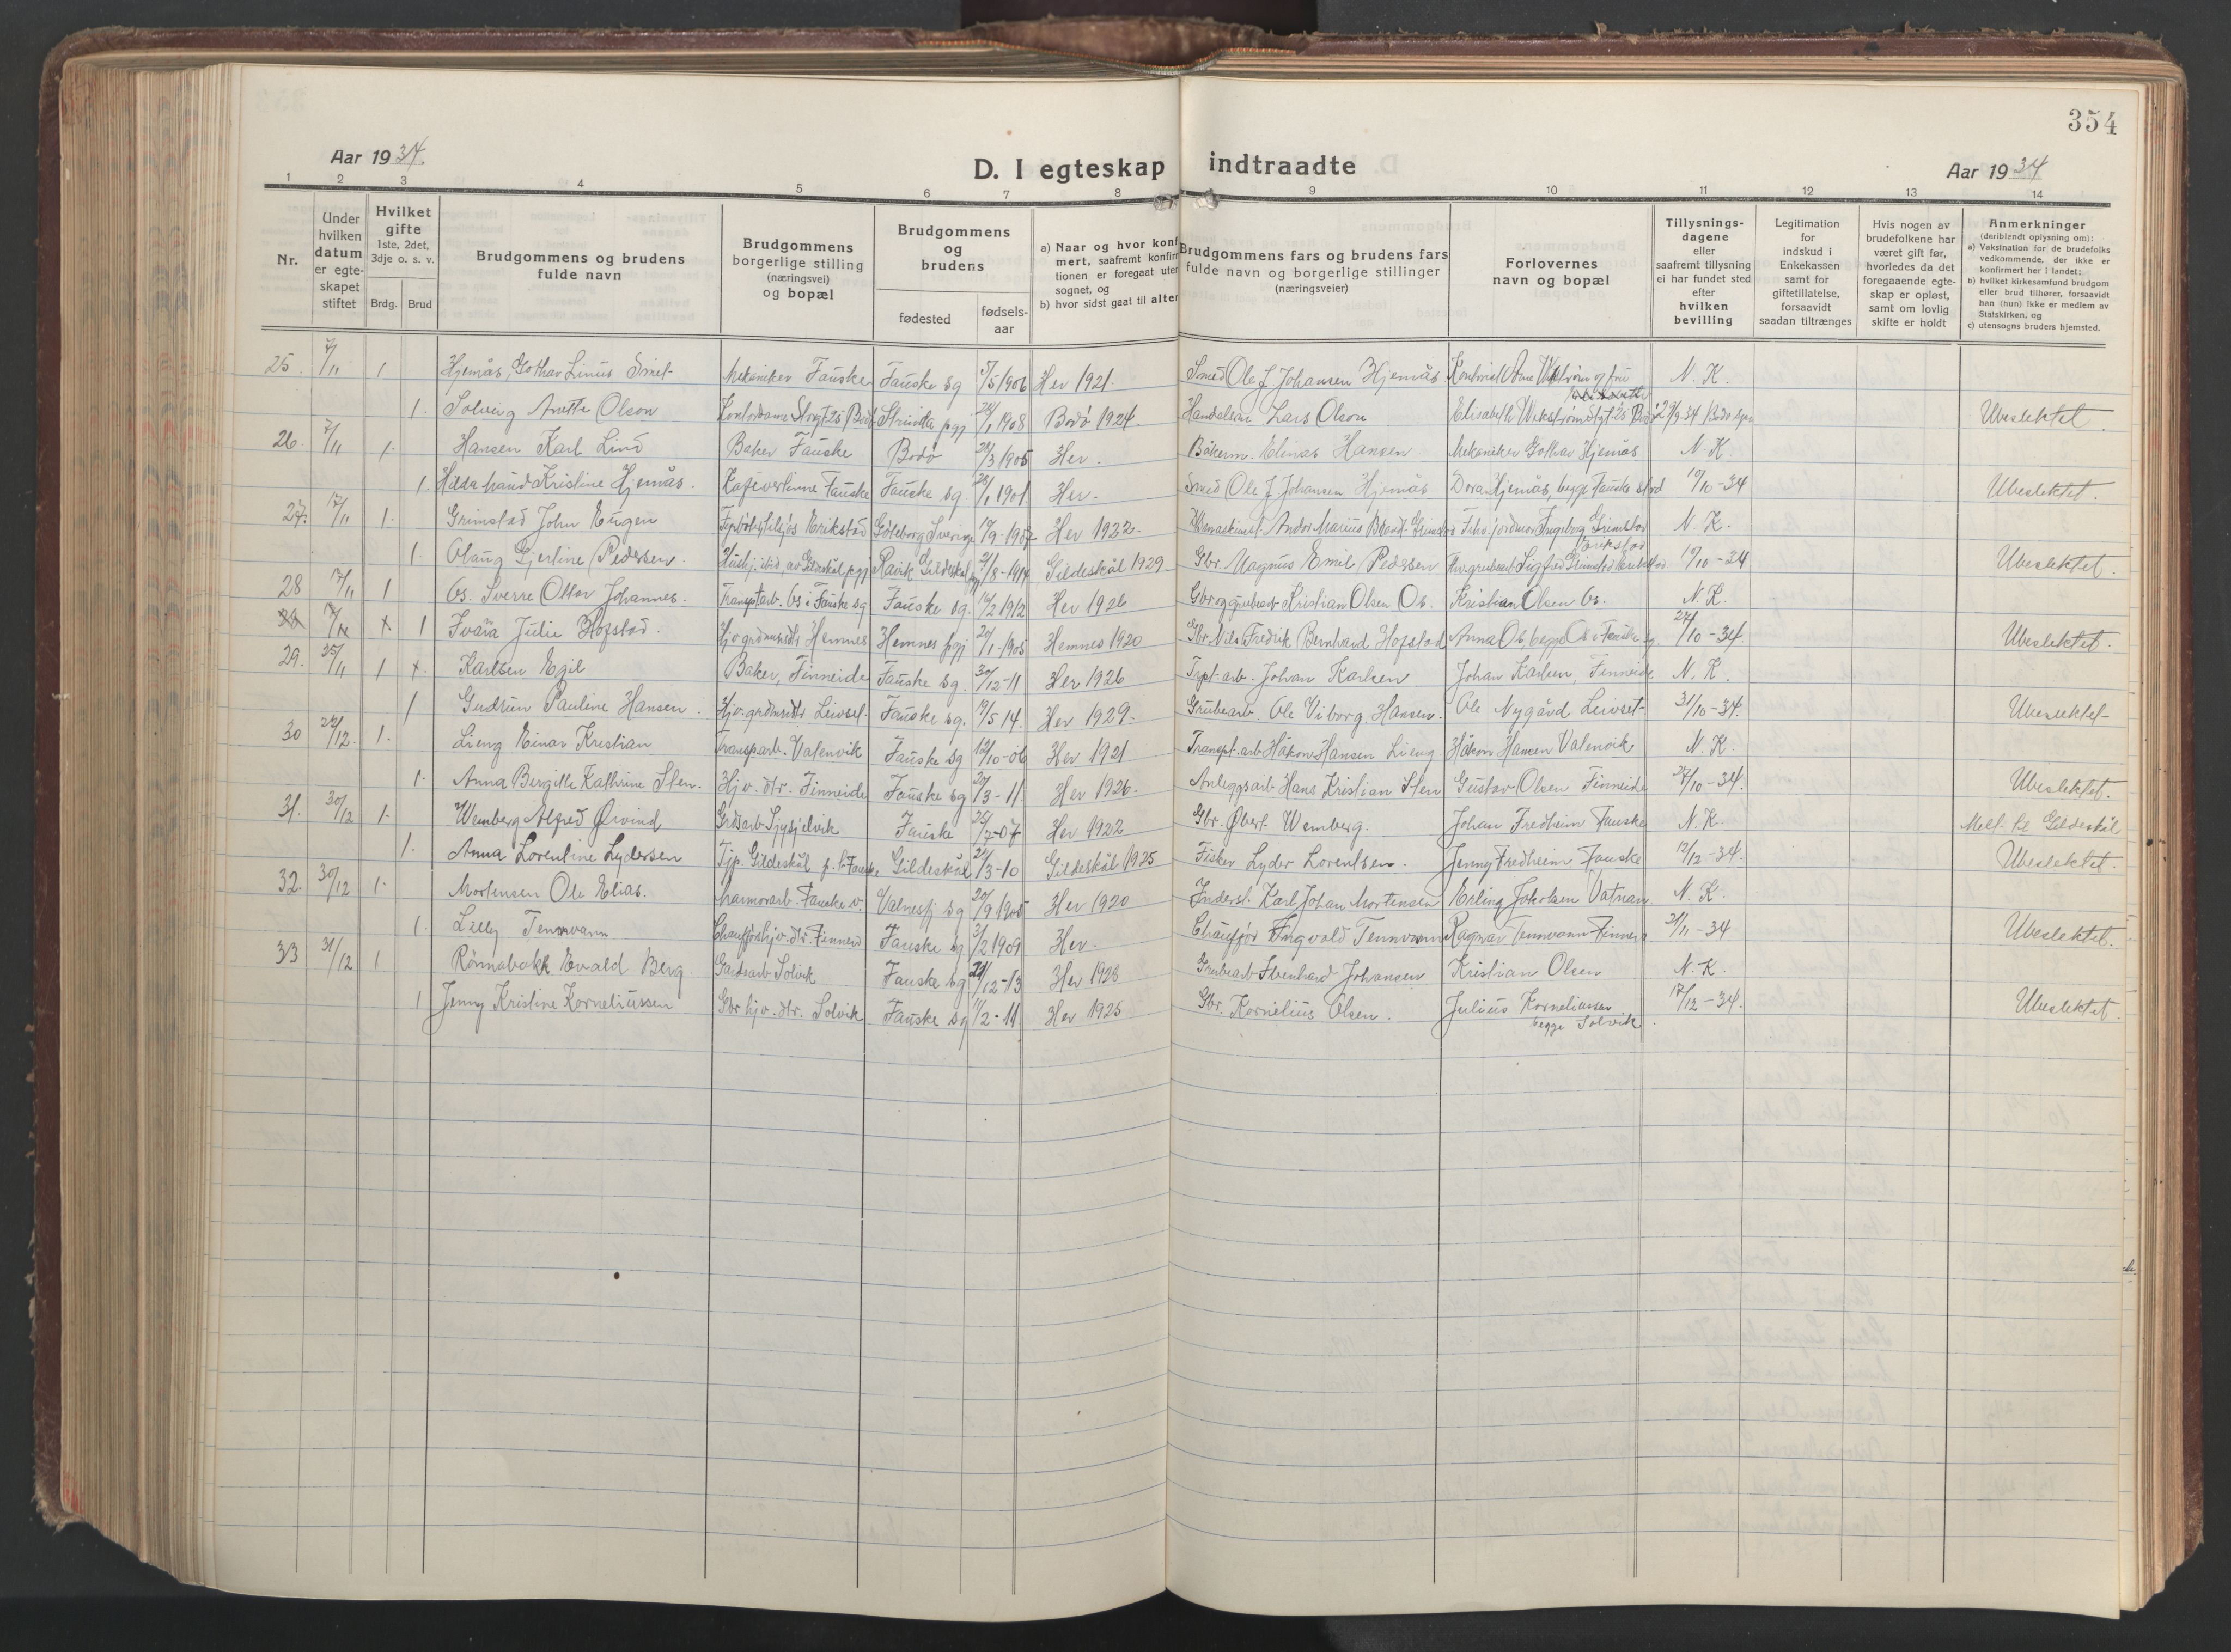 354
Aar 1934.
D. I egteskap indtraadte
Aar 1934
1 2 3 4 5 6 7 8 9 10 11 12 13 14
Nr.
Under hvilken datum er egteskapet stiftet
Hvilket gifte 1ste, 2det, 3dje o. s. v.
Brdg. Brud
Brudgommens og brudens fulde navn
Brudgommens borgerlige stilling (næringsvei) og bopæl
Brudgommens og brudens
fødested
fødsels-aar
a) Naar og hvor konf
mert, saafremt konfir
tionen er foregaat uten
sognet, og
b) hvor sidst gaat til alter
Brudgommens fars og brudens fars fulde navn og borgerlige stillinger (næringsveier)
Forlovernes navn og bopæl
Tillysnings-dagene eller saafremt tillysning ei har fundet sted efter hvilken bevilling
Legitimation for indskud i Enkekassen samt for giftetillatelse, forsaavidt saadan tiltrænges
Hvis nogen av brudefolkene har været gift før, hvorledes da det foregaaende egte-skap er opløst, samt om lovlig skifte er holdt
Anmerkninger
(deriblandt oplysning om):
a) Vaksination for de brudefolks vedkommende, der ikke er konfirmert her i landet;
b) hvilket kirkesamfund brudgom eller brud tilhører, forsaavidt han (hun) ikke er medlem av Statskirken, og
c) utensogns bruders hjemsted.
25. 7/11 1 Hjemås, Gothar Linus Emel Mekaniker Fauske Fauske sg 5/5 1906 Her 1921. Smed Ole J. Johansen Hjemås N. K.
1. Solveig Anette Olson Kontordame Storgt 25 Bodø pgj 1908 Bodø 1924. Handelsm Lars Olson Elisabeth Wekstrøm Stgt 25 Bodø 29/9 34 Ubeslektet.
26 7/11 1. Hansen Karl Lind Baker Fauske Bodø 28/3 1905 Her. Bakerm. Elinas Hansen Mekaniker Gothar Hjemås N. K.
1. Hilda Maud Kristine Hjemås. Kafevertinne Fauske Fauske sg. 1 1901 Her. Smed Ole J. Johansen Hjemås Dora Hjemås, begge Fauske 19/10-34 Ubeslektet.
27. 17/11 1. Grimstad John Eugen Erikstad Göteborg Sverige 19/9-1907 Her 1922. Andor Marius Grimstad Ingeborg Grimstad N. K.
1. Olaug Gjertine Pedersen. Gildeskål pgj 8-1914 Gildeskål 1929 Gbr. Magnus Emil Pedersen Sigfred Grimstad Erikstad 19/10-34 Ubeslektet.
28 17/11 1 Os. Sverre Ottar Johannes. Transptarb. Os i Fauske sg Fauske sg. 16/2 1912 Her 1926 Gbr og grubearb Kristian Olsen Os. Kristian Olsen Os. N. K.
1 Julie Hofstad. Hemnes Hemnes pgj 20/1-1905 Hemnes 1920 Gbr. Nils Fredrik Bernhard Hofstad Anna Os begge Os i Fauske sg. 27/10-34 Ubeslektet.
29. 25/11 1 Karlsen Egil Baker, Finneide Fauske sg. 30/12-11 Her 1926 Trpt.arb. Johan Karlsen Johan Karlsen, Finneide N. K.
1 Gudrun Pauline Hansen. Leivset Fauske sg. 19/5 14. Her 1929. Grubearb. Ole Viborg Hansen. Ole Nygård Leivset 31/10-34. Ubeslektet
30 22/12. 1. Lieng Einar Kristian Transparb. Valenvik Fauske sg 12/10-06 Her 1921 Transpt.arb Håkon Hansen Lieng Håkon Hansen Valenvik N. K.
1. Anna Bergitte Kathrine Sten. Hj v. dtr. Finneide Fauske sg 20/3-11. Her 1926. Anleggsarb Hans Kristian Sten Gustav Olsen Finneide 27/10-34. Ubeslektet.
31. 30/12 1. Wemberg Alfred Øivind Fauske 7-07 Her 1922 Gbr. Øbert Wemberg. Johan Fredheim Fauske N. K. Melt til Gildeskål
1. Anna Lorentine Lydersen Tjp. Gildeskål p. t. Fauske Gildeskål 3-10 Gildeskål 1925 Fisker Lyder Lorentsen. Jenny Fredheim Fauske 12/12-34. Ubeslektet.
32. 30/12 1. Mortensen Ole Elias. Marmorarb. Fauske v. Valnesfj sg 20/9 1905 Her 1920 Karl Johan Mortensen Erling Jakobsen Vatnan. N. K.
1. Lilly Tennvann Fauske sg 3/2 1909 Her. Chauffør Ingvald Tennvann Ragnar Tennvann Finneid 21/11-34 Ubeslektet.
33 31/12 1 Rönnabakk Evald Berg Gardsarb Solvik Fauske sg 12-13 Her 1928 Grubearb Johansen Kristian Olsen N. K.
1 Jenny Kristine Korneliussen Gbr hjv. dtr. Solvik Fauske sg 11/2-11 Her 1925 Gbr. Kornelius Olsen. Julius Korneliussen begge Solvik. 17/12-34. Ubeslektet.